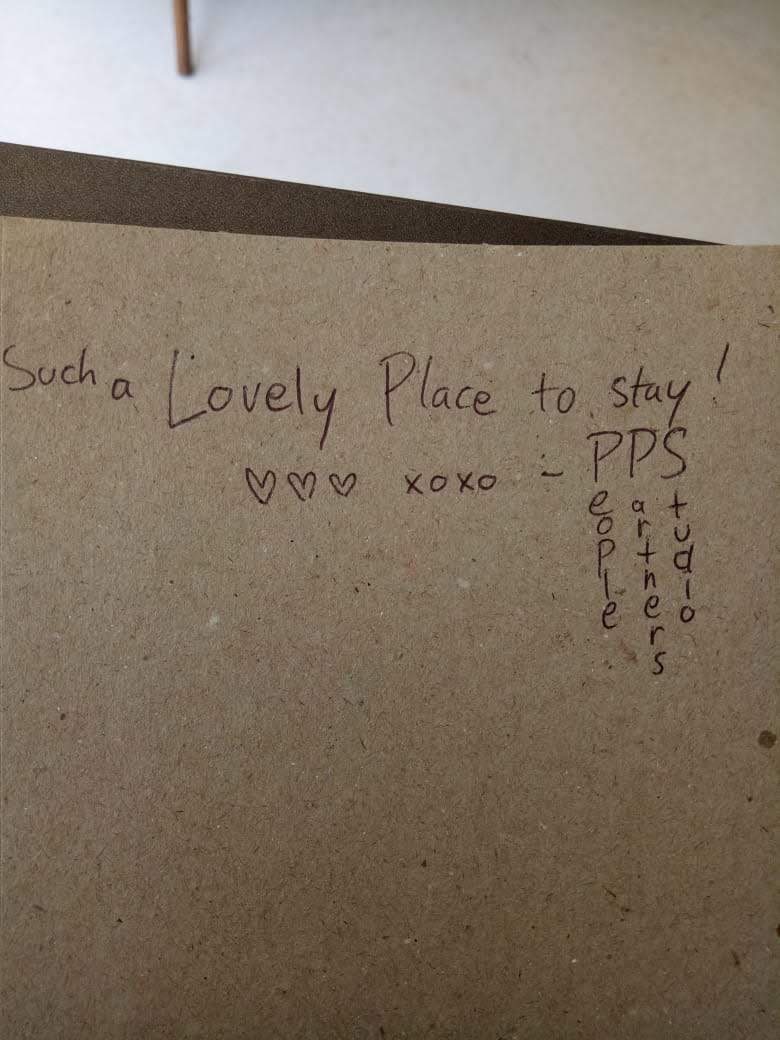 Such a Lovely Place to stay!
♡♡♡ xoxo - PPS
People
Partners
Studio